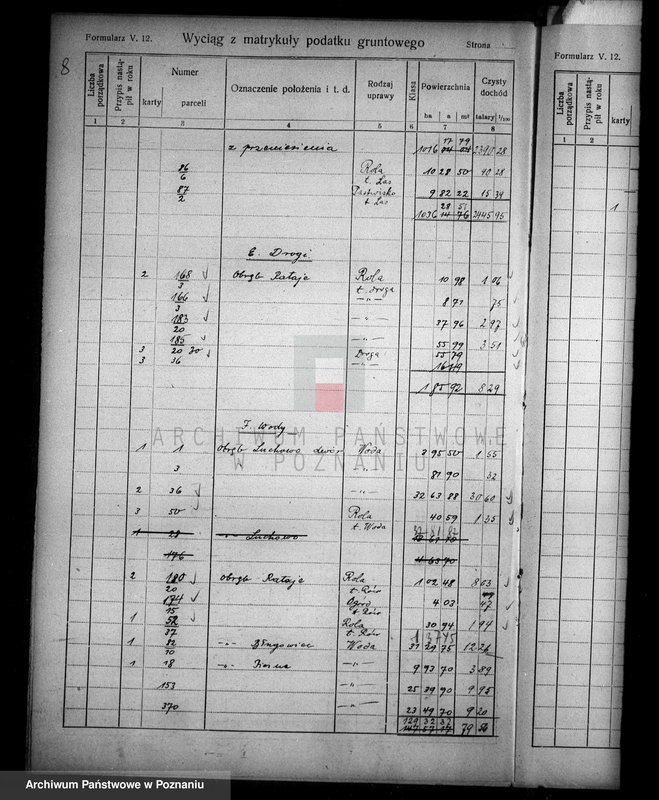 8
Formularz V. 12. Wyciąg z matrykuły podatku gruntowego Strona
Liczba porządkowa Przypis nastąpił w roku Numer karty parceli Oznaczenie położenia i t. d. Rodzaj uprawy Klasa Powierzchnia ha a m² Czysty dochód talary 1/100
1 2 3 4 5 6 7 8
17 79
z przeniesienia 1016 04 04 2390 28
86/6 Rola t. Las 10 28 50 40 28
87/2 Pastwisko t Las 9 82 22 15 34
28 51
1036 14 76 2445 95
E. Drogi
2 168/3 Obręb Rataje Rola t. droga 10 98 1 06
166/3 -"- 8 71 75
183/20 -"- 37 96 2 97
185/20 -"- 55 99 3 51
3 30 Droga 55 79
3 36 -"- 16 49
1 85 92 8 29
F. Wody
1 1 Obręb Luchowo dwór Woda 3 95 50 1 55
3 -"- 81 90 32
2 36 -"- 32 63 88 30 60
3 50 Rola t. Woda 40 59 1 35
1 28 -"- Luchowo
176 4 63 70
2 180/20 Obręb Rataje Rola t. Rów 1 02 48 8 03
174/15 Ogród t. Rów 4 03 47
1 52/37 Rola t. Rów 30 94 1 94
1 82/30 -"- Długowiec Woda 31 29 75 12 26
1 18 -"- 9 93 70 3 89
153 -"- 25 39 90 9 95
370 -"- 23 49 70 9 20
129 32 37
79 56
Formularz V. 12.
Liczba porządkowa Przypis nastąpił w roku karty
1 2
1
ARCHIWUM PAŃSTWOWE
W POZNANIU
Archiwum Państwowe w Poznaniu